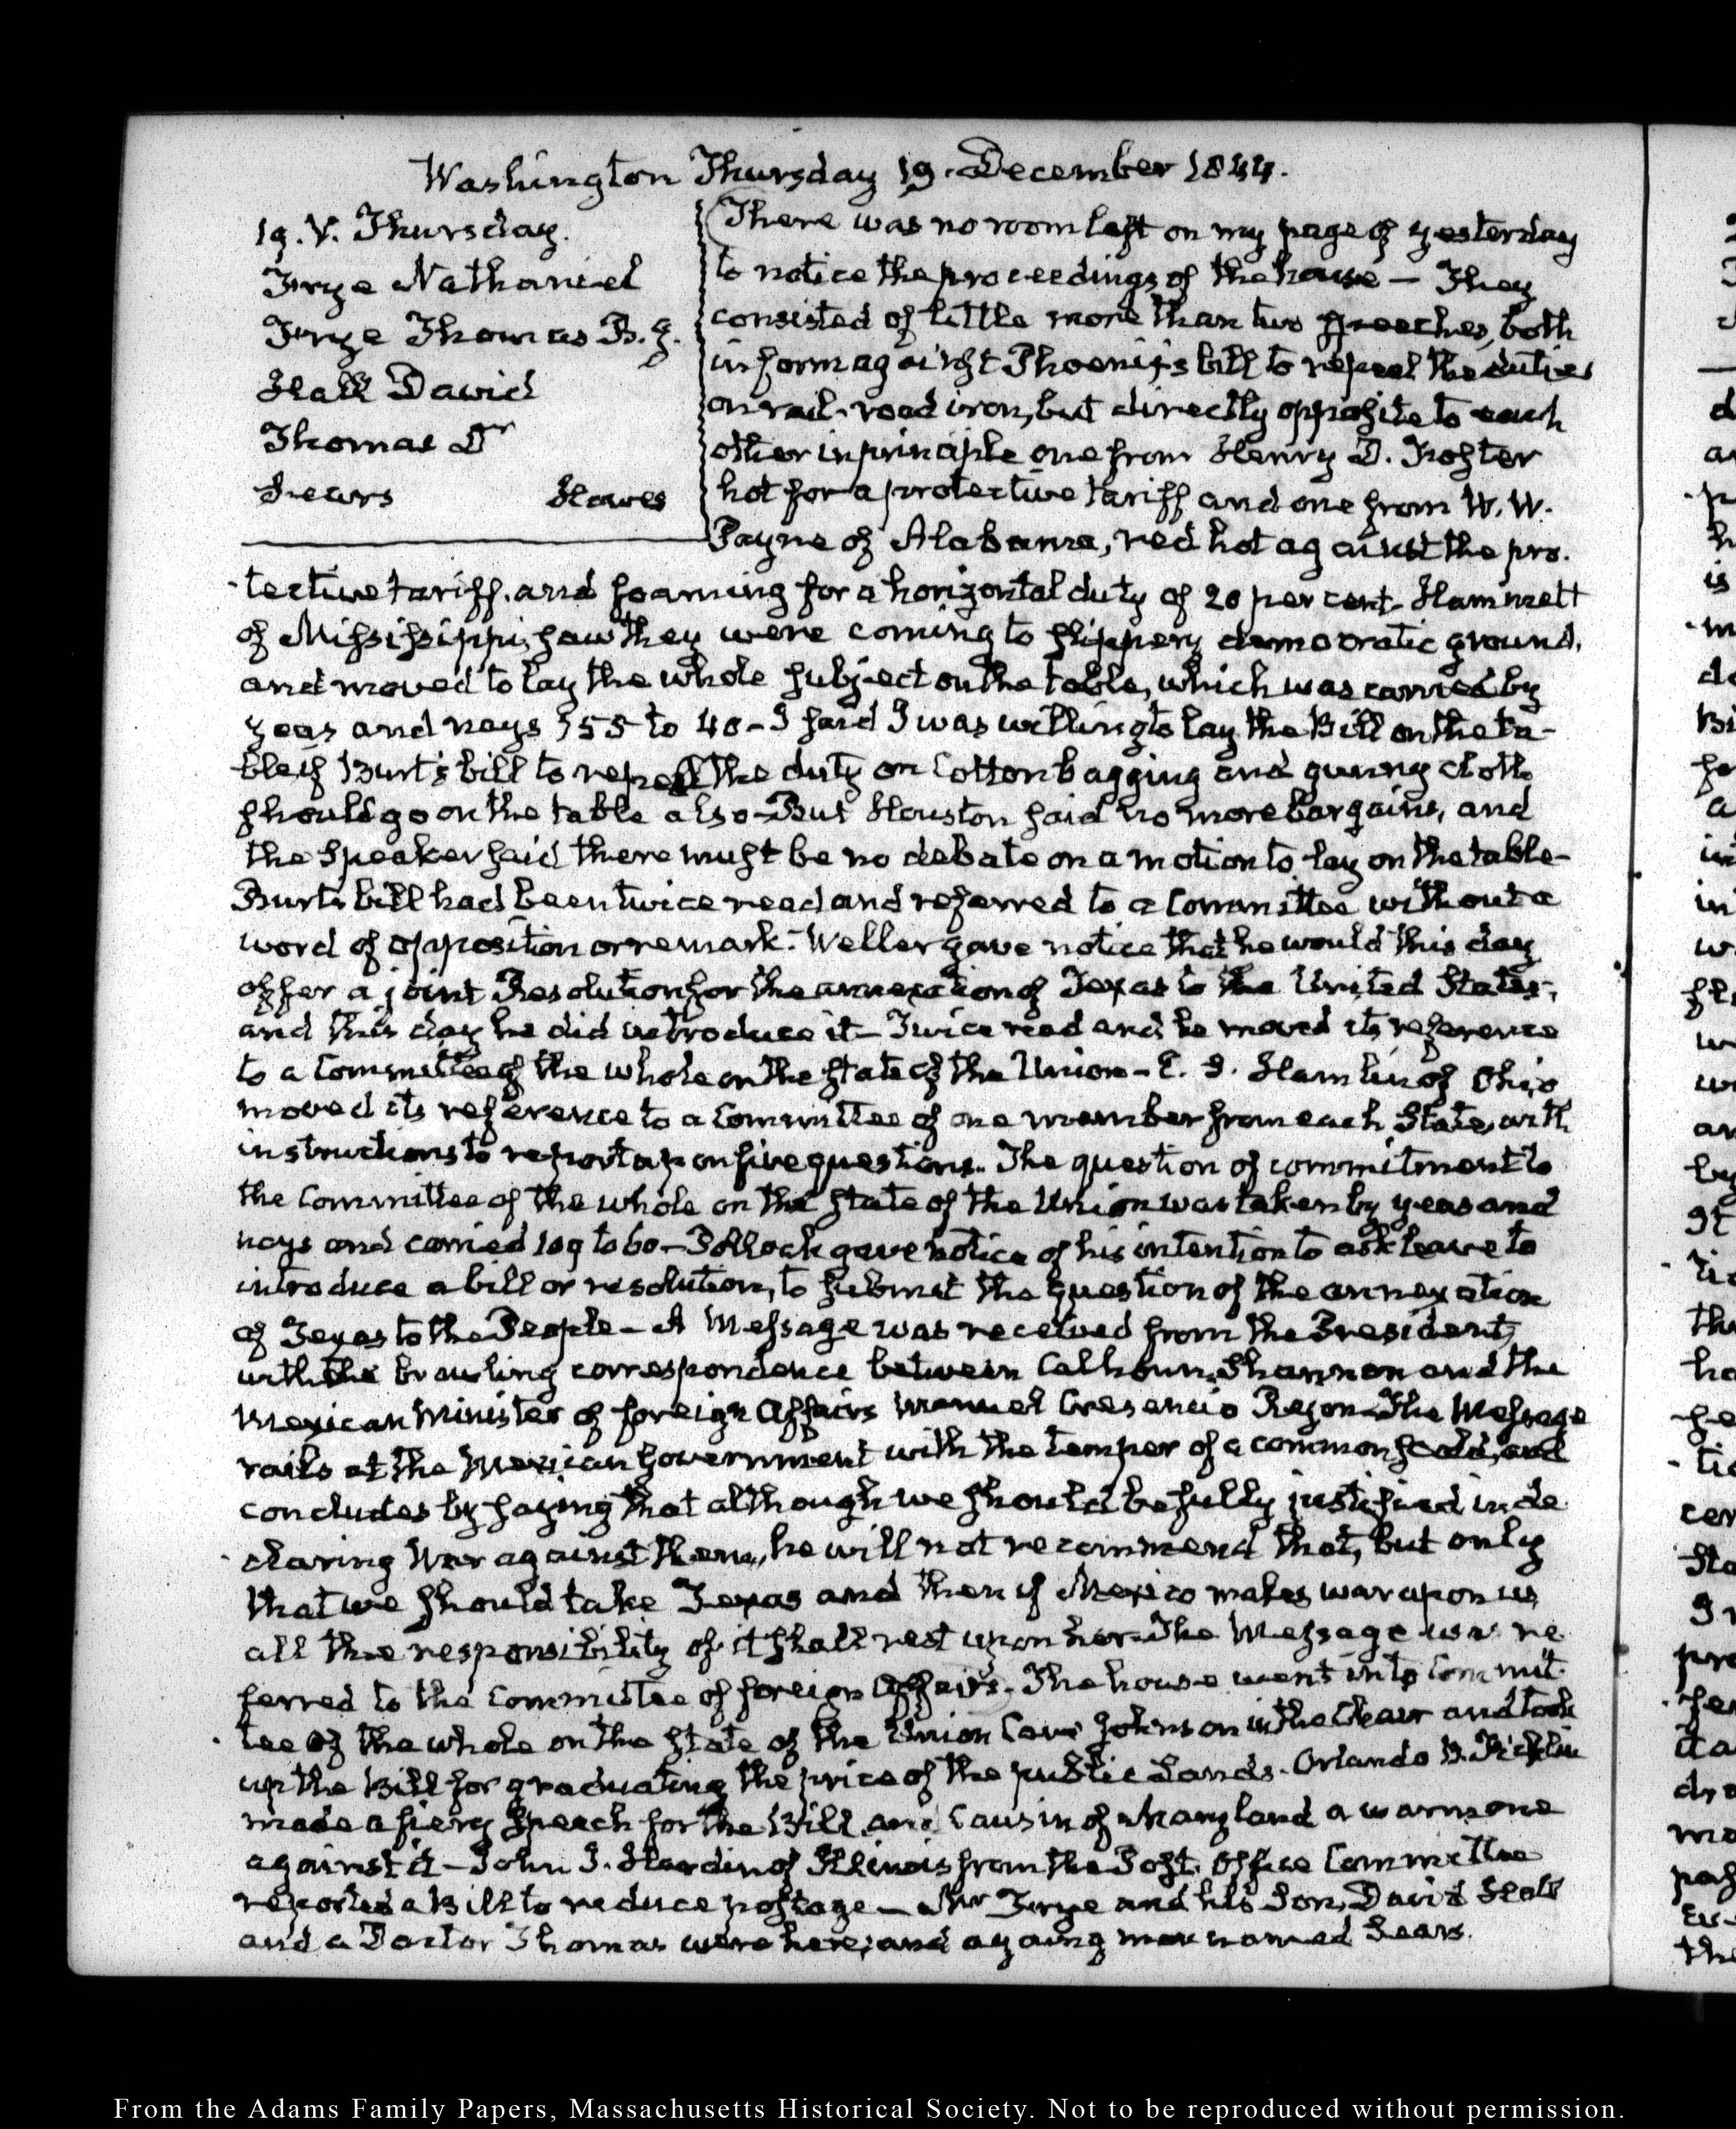 Washington Thursday 19. December 1844.
19. V. Thursday.
Frye Nathaniel
Frye Thomas B. J.
Hall David
Thomas Dr
Sears Hawes
There was no room left on my page of yesterday
to notice the proceedings of the house — They
consisted of little more than two speeches, both
in form against Phoenix's bill to repeal the duties
on rail-road iron, but directly opposite to each
other in principle one from Henry D. Foster
hot for a protective tariff and one from W. W.
Payne of Alabama, red hot against the pro-
tective tariff, and foaming for a horizontal duty of 20 per cent- Hammett
of Mississippi, saw they were coming to slippery democratic ground,
and moved to lay the whole subject on the table, which was carried by
yeas and nays 155 to 40 - I said I was willing to lay the Bill on the ta-
ble if Burt's bill to repeal the duty on Cotton bagging and gunny cloth
should go on the table also - But Houston said no more bargains, and
the Speaker said there must be no debate on a motion to lay on the table-
Burt's bill had been twice read and referred to a Committee without a
word of opposition or remark. - Weller gave notice that he would this day
offer a joint Resolution for the annexation of Texas to the United States,
and this day he did introduce it - Twice read and he moved its reference
to a Committee of the whole on the state of the Union - E. S. Hamlin of Ohio
moved its reference to a Committee of one member from each State, with
instructions to report upon five questions. The question of commitment to
the Committee of the whole on the state of the Union was taken by yeas and
nays and carried 109 to 60 - Pollock gave notice of his intention to ask leave to
introduce a bill or resolution, to submit the question of the annexation
of Texas to the People - A Message was received from the President,
with the brawling correspondence between Calhoun, Shannon and the
Mexican Minister of foreign Affairs Manuel Cresencio Rejon - The Message
rails at the Mexican Government with the temper of a common scold, and
concludes by saying that although we should be fully justified in de
claring War against them, he will not recommend that, but only
that we should take Texas and then if Mexico makes war upon us
all the responsibility of it shall rest upon her - The Message was re
ferred to the Committee of foreign Affairs. The house went into Commit-
tee of the whole on the state of the Union Cave Johnson in the Chair and took
up the Bill for graduating the price of the public Lands. Orlando B. Ficklin
made a fiery speech for the Bill, and Causin of Maryland a warm one
against it - John J. Hardin of Illinois from the Post Office Committee
reported a Bill to reduce postage - Mr Frye and his Son, David Hall
and a Doctor Thomas were here; and a young man named Sears.
From the Adams Family Papers, Massachusetts Historical Society. Not to be reproduced without permission.